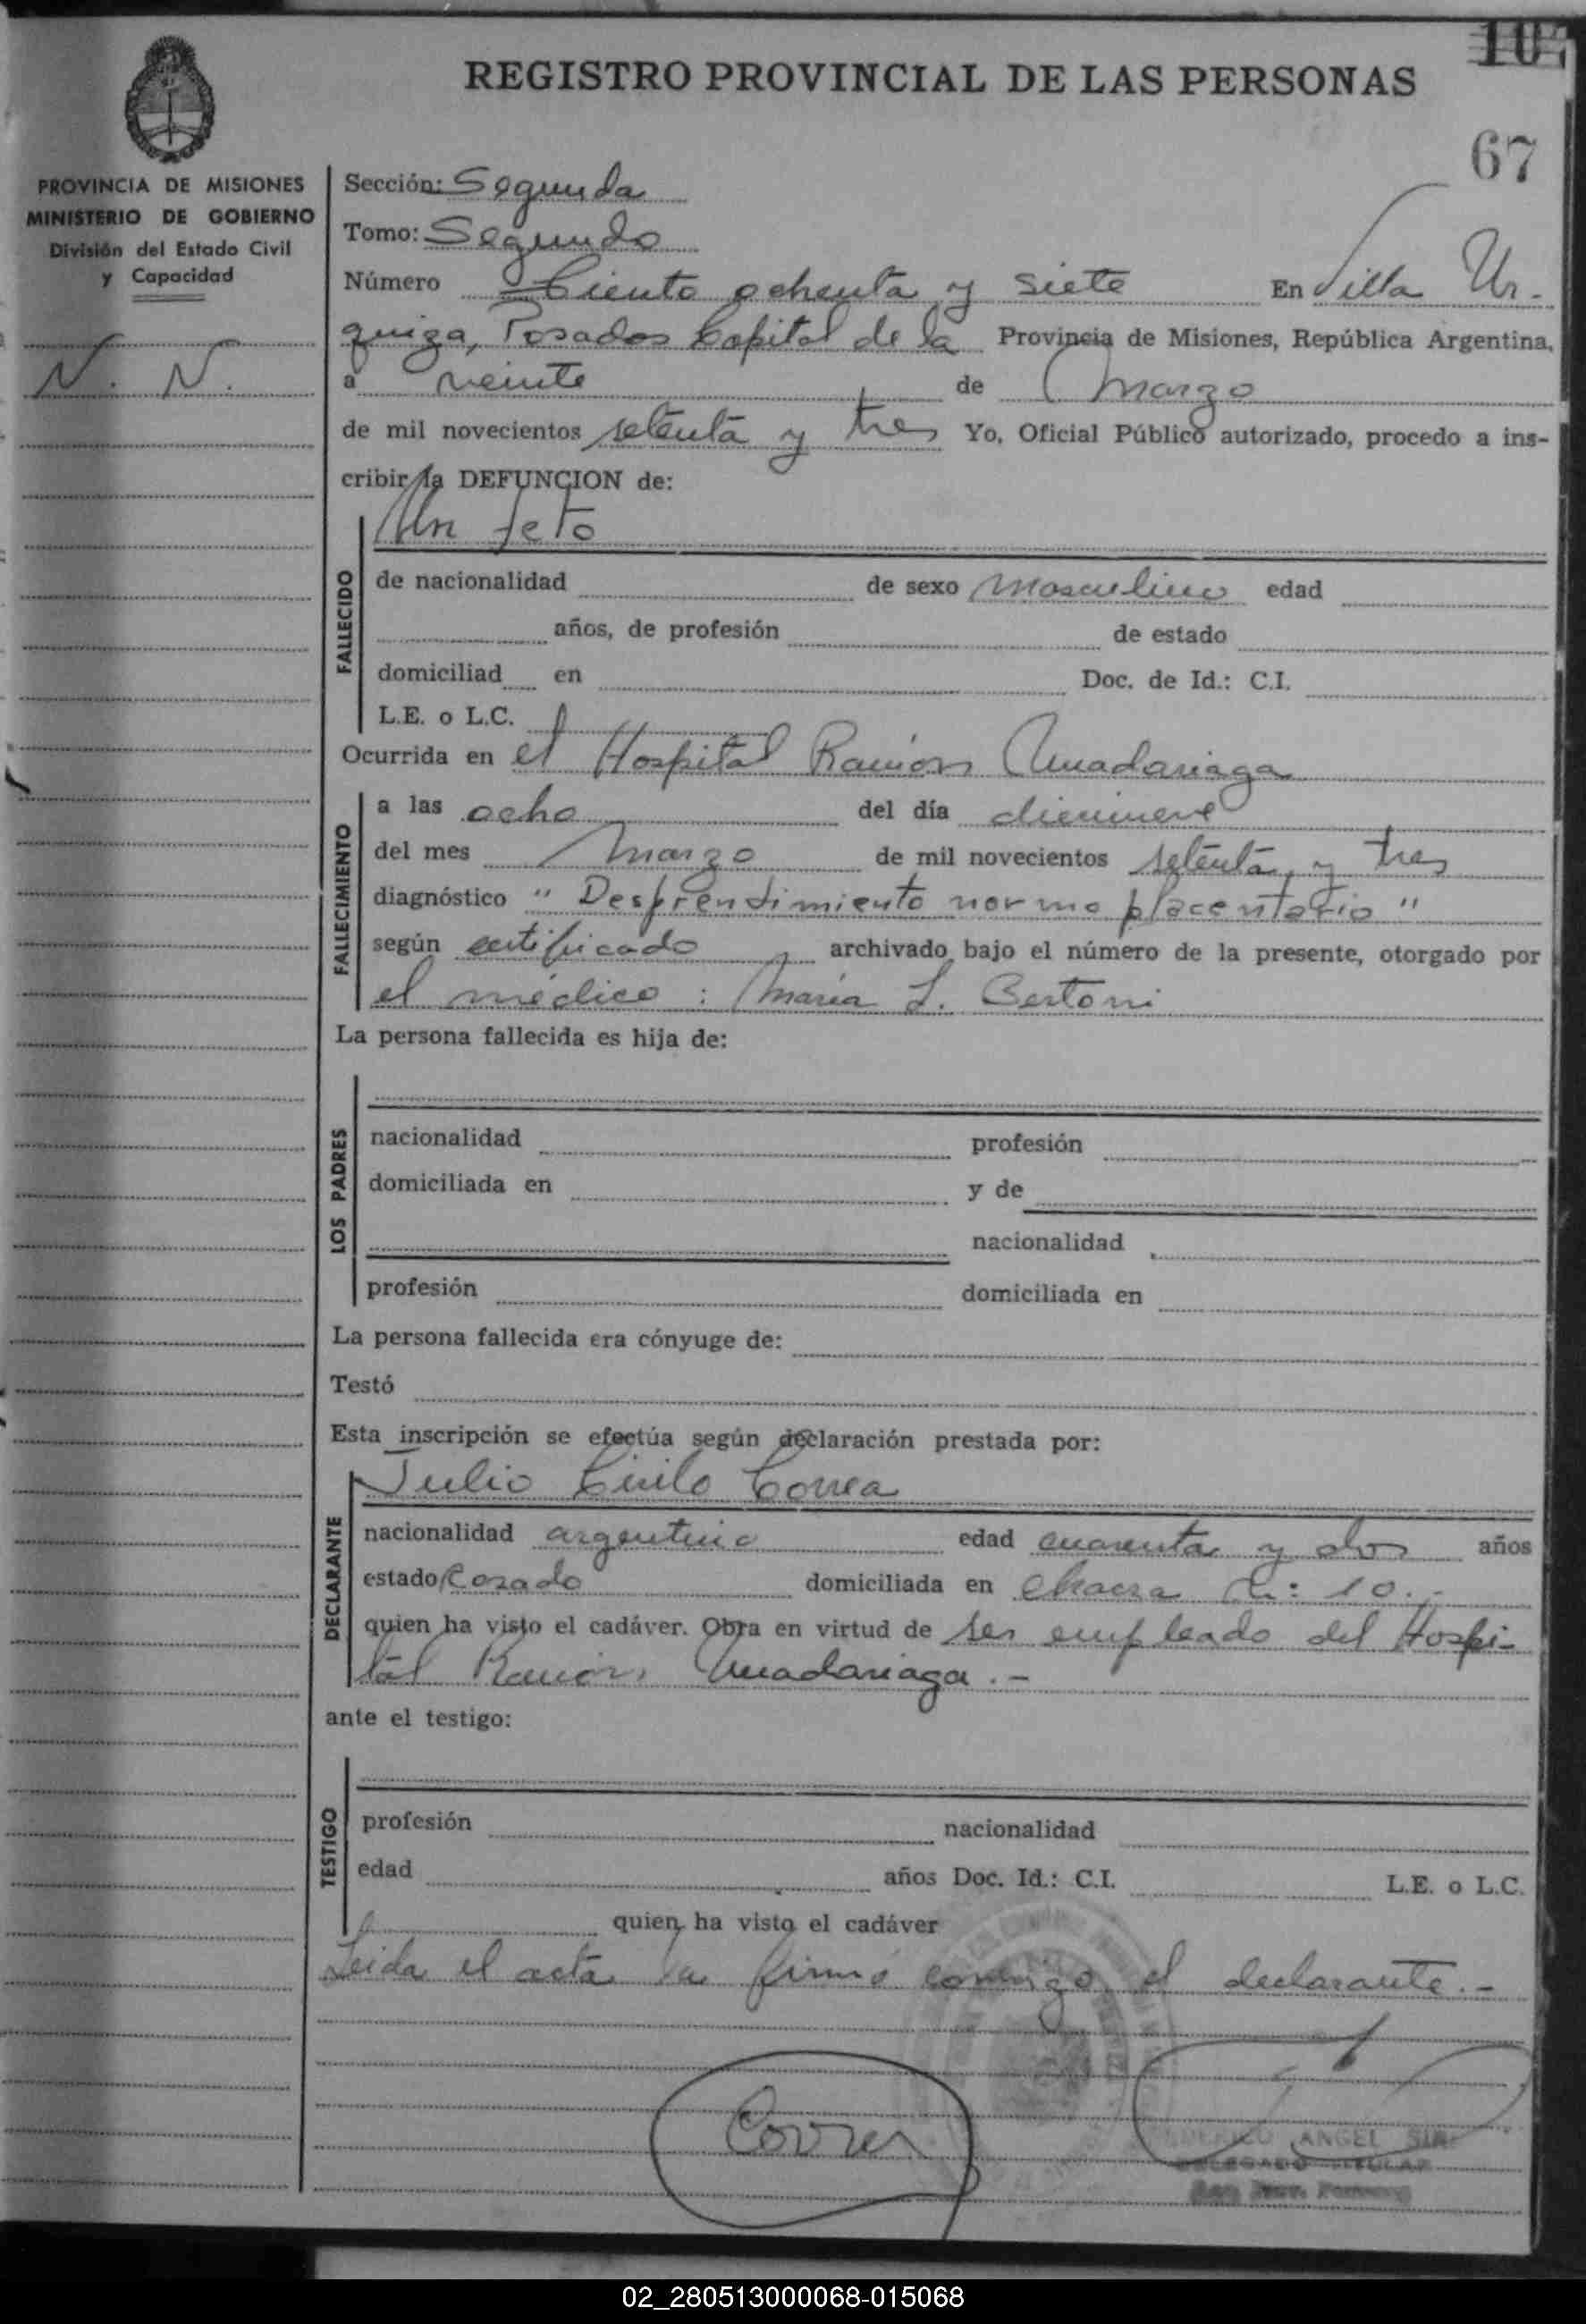 107
REGISTRO PROVINCIAL DE LAS PERSONAS
67
PROVINCIA DE MISIONES
MINISTERIO DE GOBIERNO
División del Estado Civil
y Capacidad
N. N.
Sección: Segunda
Tomo: Segundo
Número Ciento ochenta y siete En Villa Ur-
quiza, Posadas Capital de la Provincia de Misiones, República Argentina,
a veinte de Marzo
de mil novecientos setenta y tres Yo, Oficial Público autorizado, procedo a ins-
cribir la DEFUNCION de:
Un feto
FALLECIDO
de nacionalidad de sexo Masculino edad
años, de profesión de estado
domiciliad en Doc. de Id.: C.I.
L.E. o L.C.
Ocurrida en el Hospital Ramón Madariaga
FALLECIMIENTO
a las ocho del día diecinueve
del mes Marzo de mil novecientos setenta y tres
diagnóstico " Desprendimiento normo placentario "
según certificado archivado bajo el número de la presente, otorgado por
el médico: María L. Bertoni
La persona fallecida es hija de:
LOS PADRES
nacionalidad profesión
domiciliada en y de
nacionalidad
profesión domiciliada en
La persona fallecida era cónyuge de:
Testó
Esta inscripción se efectúa según declaración prestada por:
Julio Cirilo Correa
DECLARANTE
nacionalidad argentina edad cuarenta y dos años
estado Casado domiciliada en Chacra 10.-
quien ha visto el cadáver. Obra en virtud de ser empleado del Hospi-
tal Ramón Madariaga.-
ante el testigo:
TESTIGO
profesión nacionalidad
edad años Doc. Id.: C.I. L.E. o L.C.
quien ha visto el cadáver
Leida el acta la firmó conmigo el declarante.-
Correa
ANGEL
DELEGADO TITULAR
02_280513000068-015068